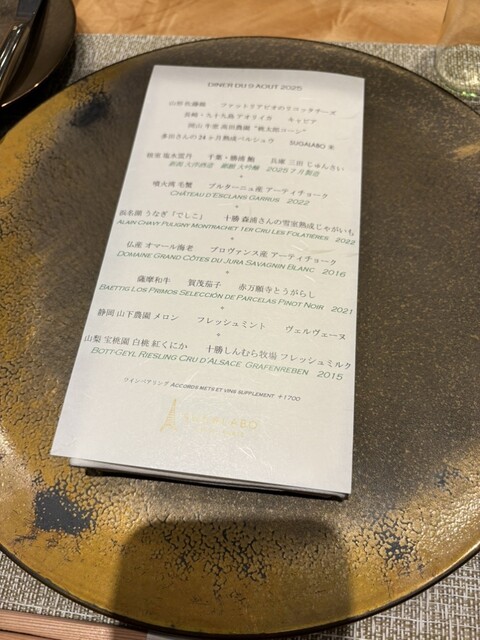 DINER DU 9 AOUT 2025
山形 佐藤錦 ファットリアビオのリコッタチーズ
長崎・九十九島 アオリイカ キャビア
岡山 牛窓 高田農園 “桃太郎コーン”
多田さんの24ヶ月熟成ペルシュウ SUGALABO 米
根室 塩水雲丹 千葉・勝浦 鮑 兵庫 三田 じゅんさい
2025 7月製造
噴火湾 毛蟹 ブルターニュ産 アーティチョーク
CHÂTEAU D'ESCLANS GARRUS 2022
浜名湖 うなぎ「でしこ」 十勝 森浦さんの雪室熟成じゃがいも
ALAIN CHAVY PULIGNY MONTRACHET 1ER CRU LES FOLATIÈRES 2022
仏産 オマール海老 プロヴァンス産 アーティチョーク
DOMAINE GRAND CÔTES DU JURA SAVAGNIN BLANC 2016
薩摩和牛 賀茂茄子 赤万願寺とうがらし
BAETTIG LOS PRIMOS SELECCIÓN DE PARCELAS PINOT NOIR 2021
静岡 山下農園 メロン フレッシュミント ヴェルヴェーヌ
山梨 宝桃園 白桃 紅くにか 十勝しんむら牧場 フレッシュミルク
BOTT-GEYL RIESLING CRU D'ALSACE GRAFENREBEN 2015
ワインペアリング ACCORDS METS ET VINS SUPPLEMENT +1700
SUGALABO